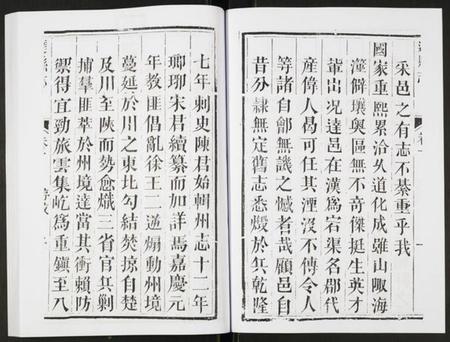 采邑之有志不綦重乎我
國家重熙累洽久道化成雖山陬海
澨僻壤輿區無不奇傑挺生英才
輩出况達邑在漢為宕渠名郡代
產偉人曷可任其湮沒不傳令人
等諸自鄶無譏之憾者哉顧邑自
昔分隷無定舊志悉燬於兵乾隆
七年刺史陳君始輯州志十二年
瑯琊宋君續纂而加詳焉嘉慶元
年教匪倡亂徐王二逆煽動州境
蔓延於川之東北勾結焚掠自楚
及川至陝而勢愈熾三省官兵剿
捕羣匪萃於州境達當其衝賴防
禦得宜勁旅雲集屹為重鎮至八